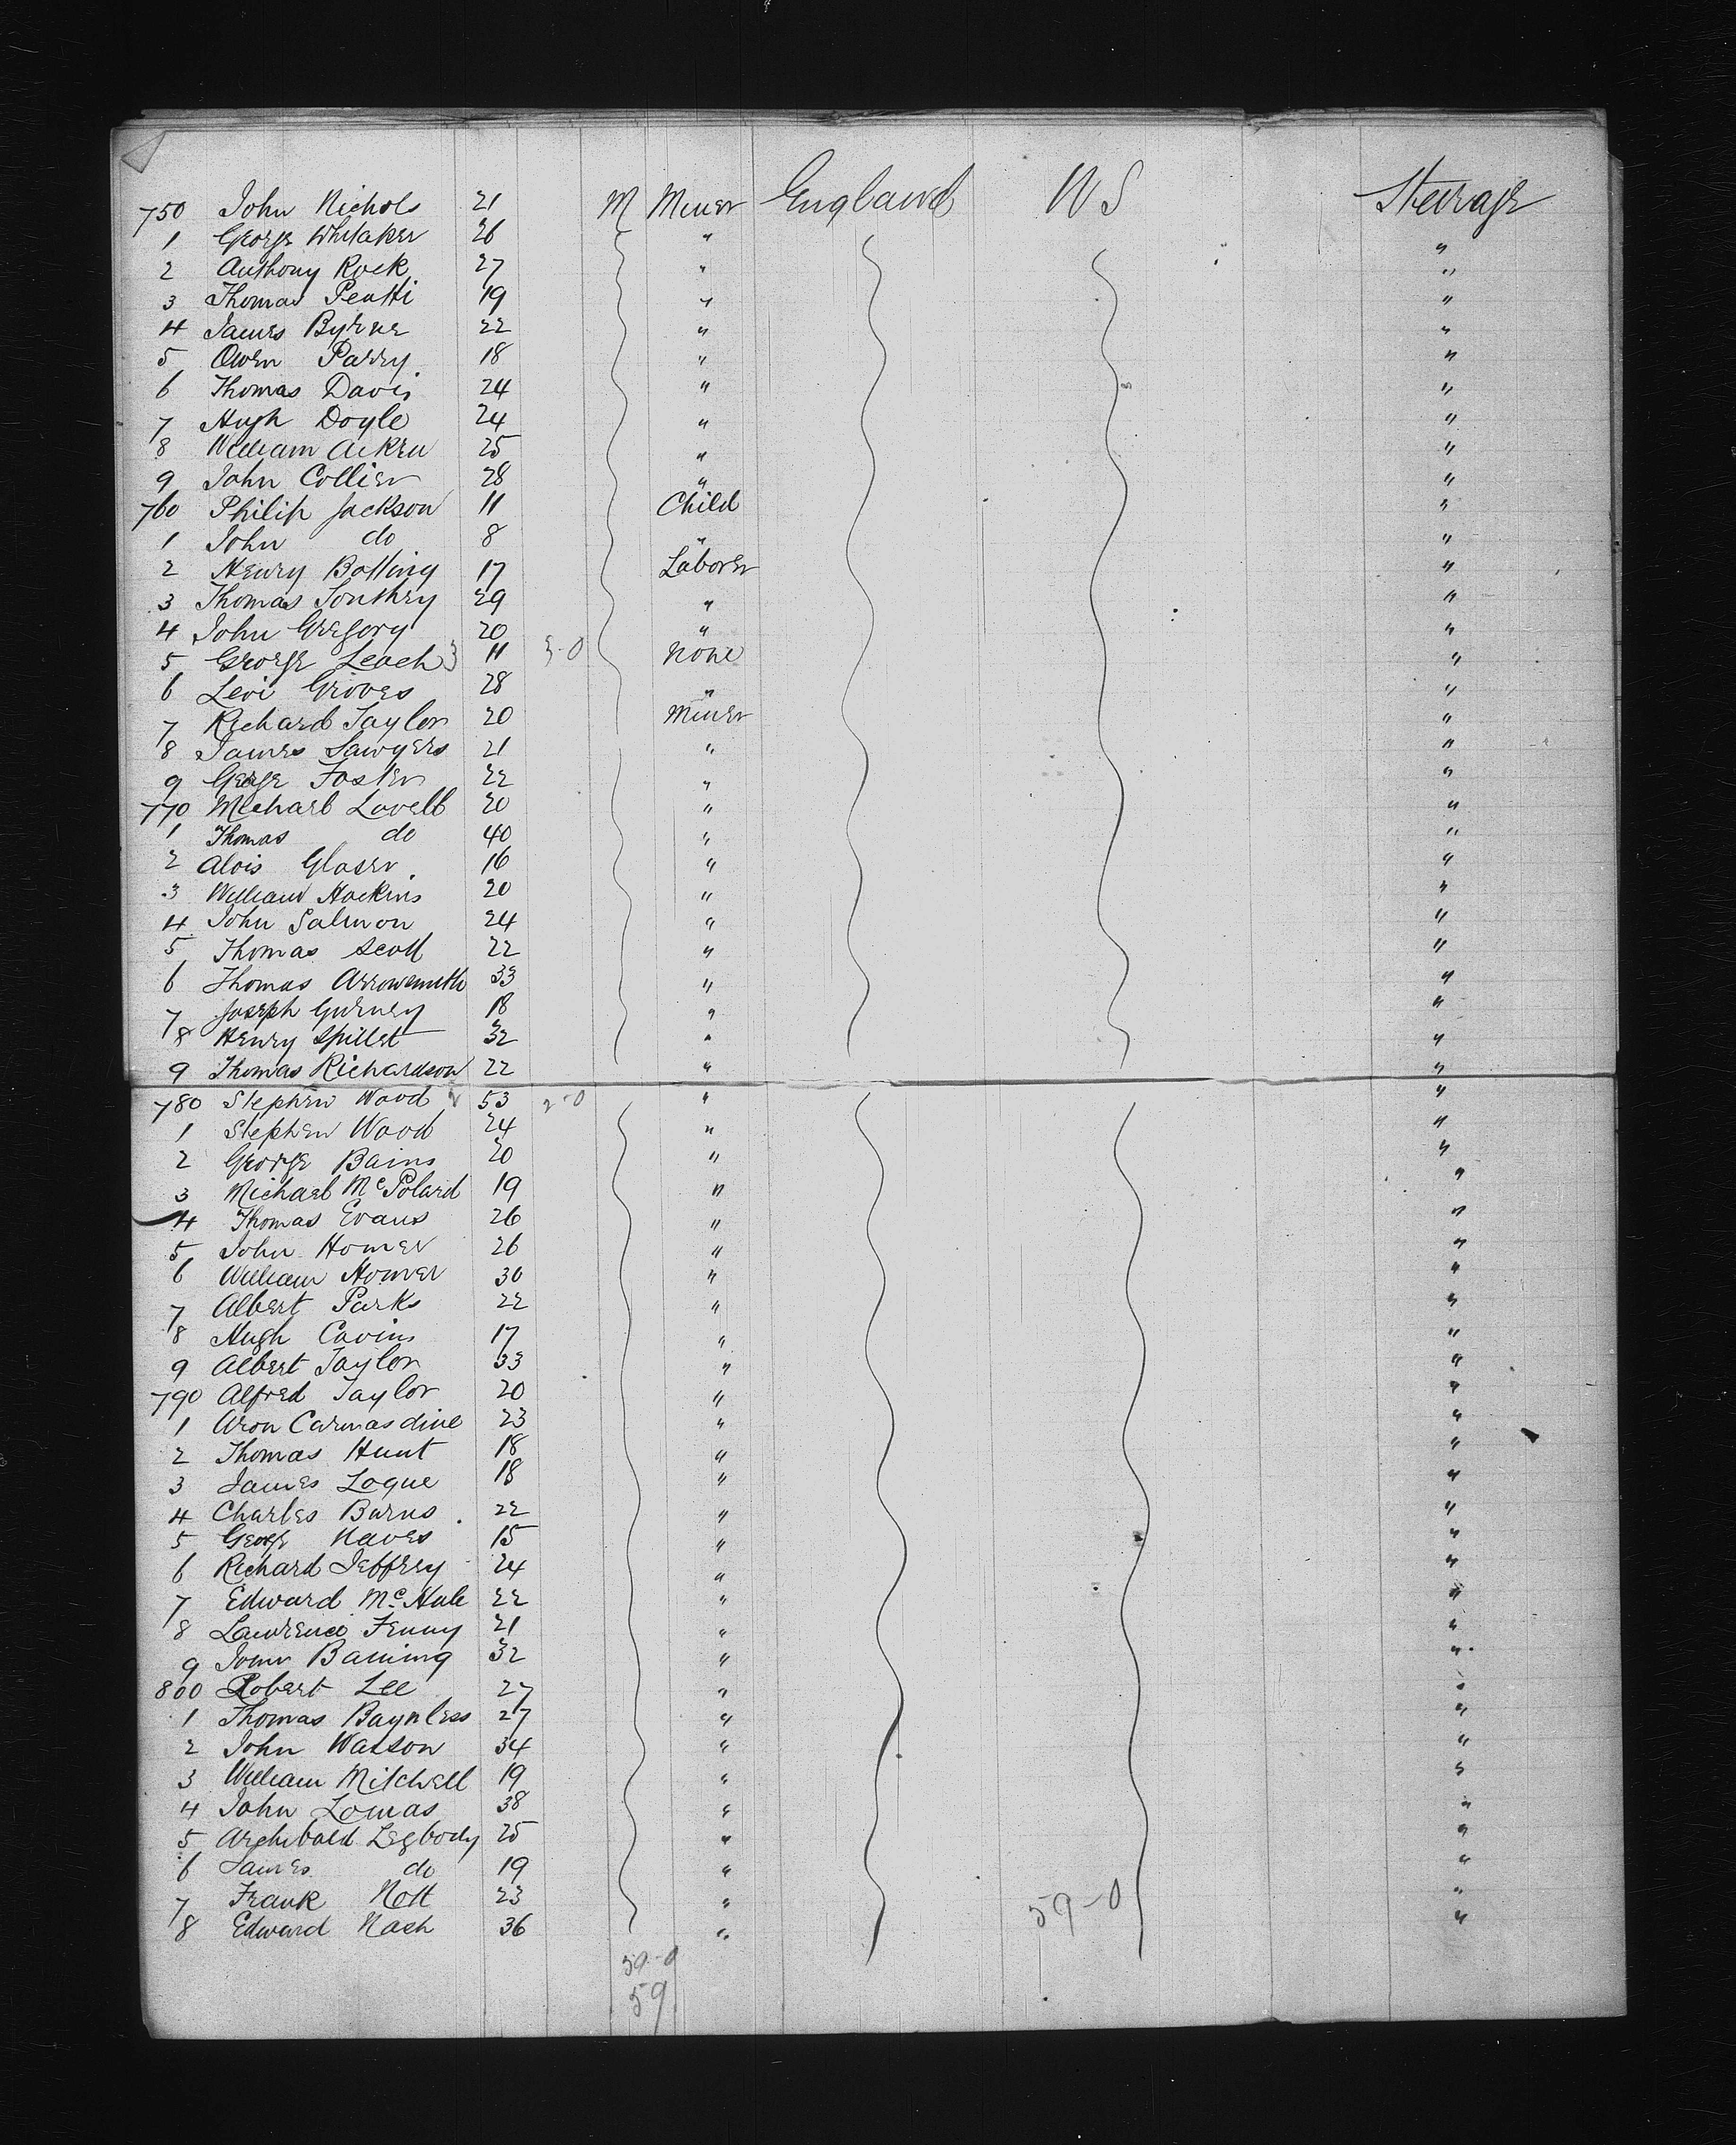 750 John Nichols 21 M Miner England U S Steerage
1 George Whitaker 26 " "
2 Anthony Rock 27 " "
3 Thomas 19 " "
4 James Byrne 22 " "
5 Owen Parry 18 " "
6 Thomas Davis 24 " "
7 Hugh Doyle 24 " "
8 William Aiken 25 " "
9 John Collier 28 " "
760 Philip Jackson 11 Child "
1 John do 8 " "
2 Henry Botting 17 Laborer "
3 Thomas Southey 29 " "
4 John Gregory 20 " "
5 George Leach 3 11 3-0 None "
6 Levi Groves 28 " "
7 Richard Taylor 20 Miner "
8 James Sawyers 21 " "
9 George Foster 22 " "
770 Michael Lovell 20 " "
1 Thomas do 40 " "
2 Alois Glaser 16 " "
3 William Hockins 20 " "
4 John Salmon 24 " "
5 Thomas Scott 22 " "
6 Thomas Arrowsmith 33 " "
7 Joseph Gurney 18 " "
8 Henry Spillet 32 " "
9 Thomas Richardson 22 " "
780 Stephen Wood 2 53 2-0 " "
1 Stephen Wood 24 " "
2 George Bains 20 " "
3 Michael McPolard 19 " "
4 Thomas Evans 26 " "
5 John Homer 26 " "
6 William Homer 30 " "
7 Albert Parks 22 " "
8 Hugh Cavins 17 " "
9 Albert Taylor 33 " "
790 Alfred Taylor 20 " "
1 Aron Carmasdine 23 " "
2 Thomas Hunt 18 " "
3 James Logue 18 " "
4 Charles Burns 22 " "
5 George Naves 15 " "
6 Richard Jeffrey 24 " "
7 Edward McHale 22 " "
8 Lawrence Fenny 21 " "
9 32 " "
800 Robert Lee 27 " "
1 Thomas Baynless 27 " "
2 John Watson 34 " "
3 William Mitchell 19 " "
4 John Lomas 38 " "
5 Archibald Legbody 25 " "
6 James do 19 " "
7 Frank Nott 23 " "
8 Edward Nash 36 " 59-0 "
59-0
59